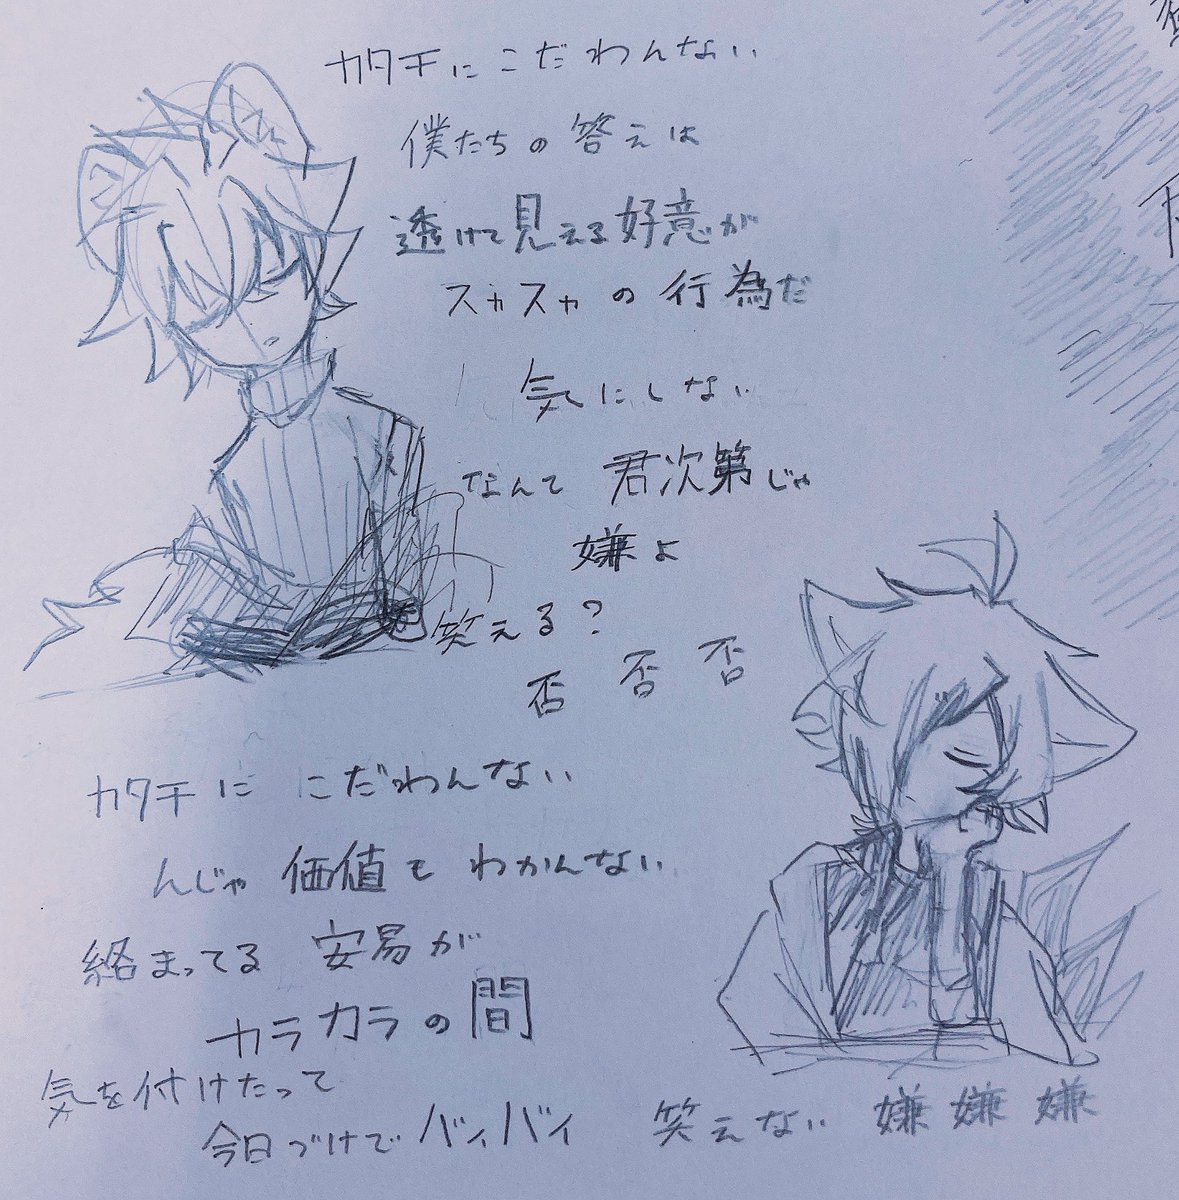 カタチにこだわんない
僕たちの答えは
透けて見える好意が
スカスカの行為だ
気にしない
なんて君次第じゃ
嫌よ
笑える？
否 否 否
カタチに こだわんない
んじゃ 価値も わかんない
絡まってる 安易が
カラカラの間
気を付けたって
今日づけでバイバイ
笑えない 嫌 嫌 嫌